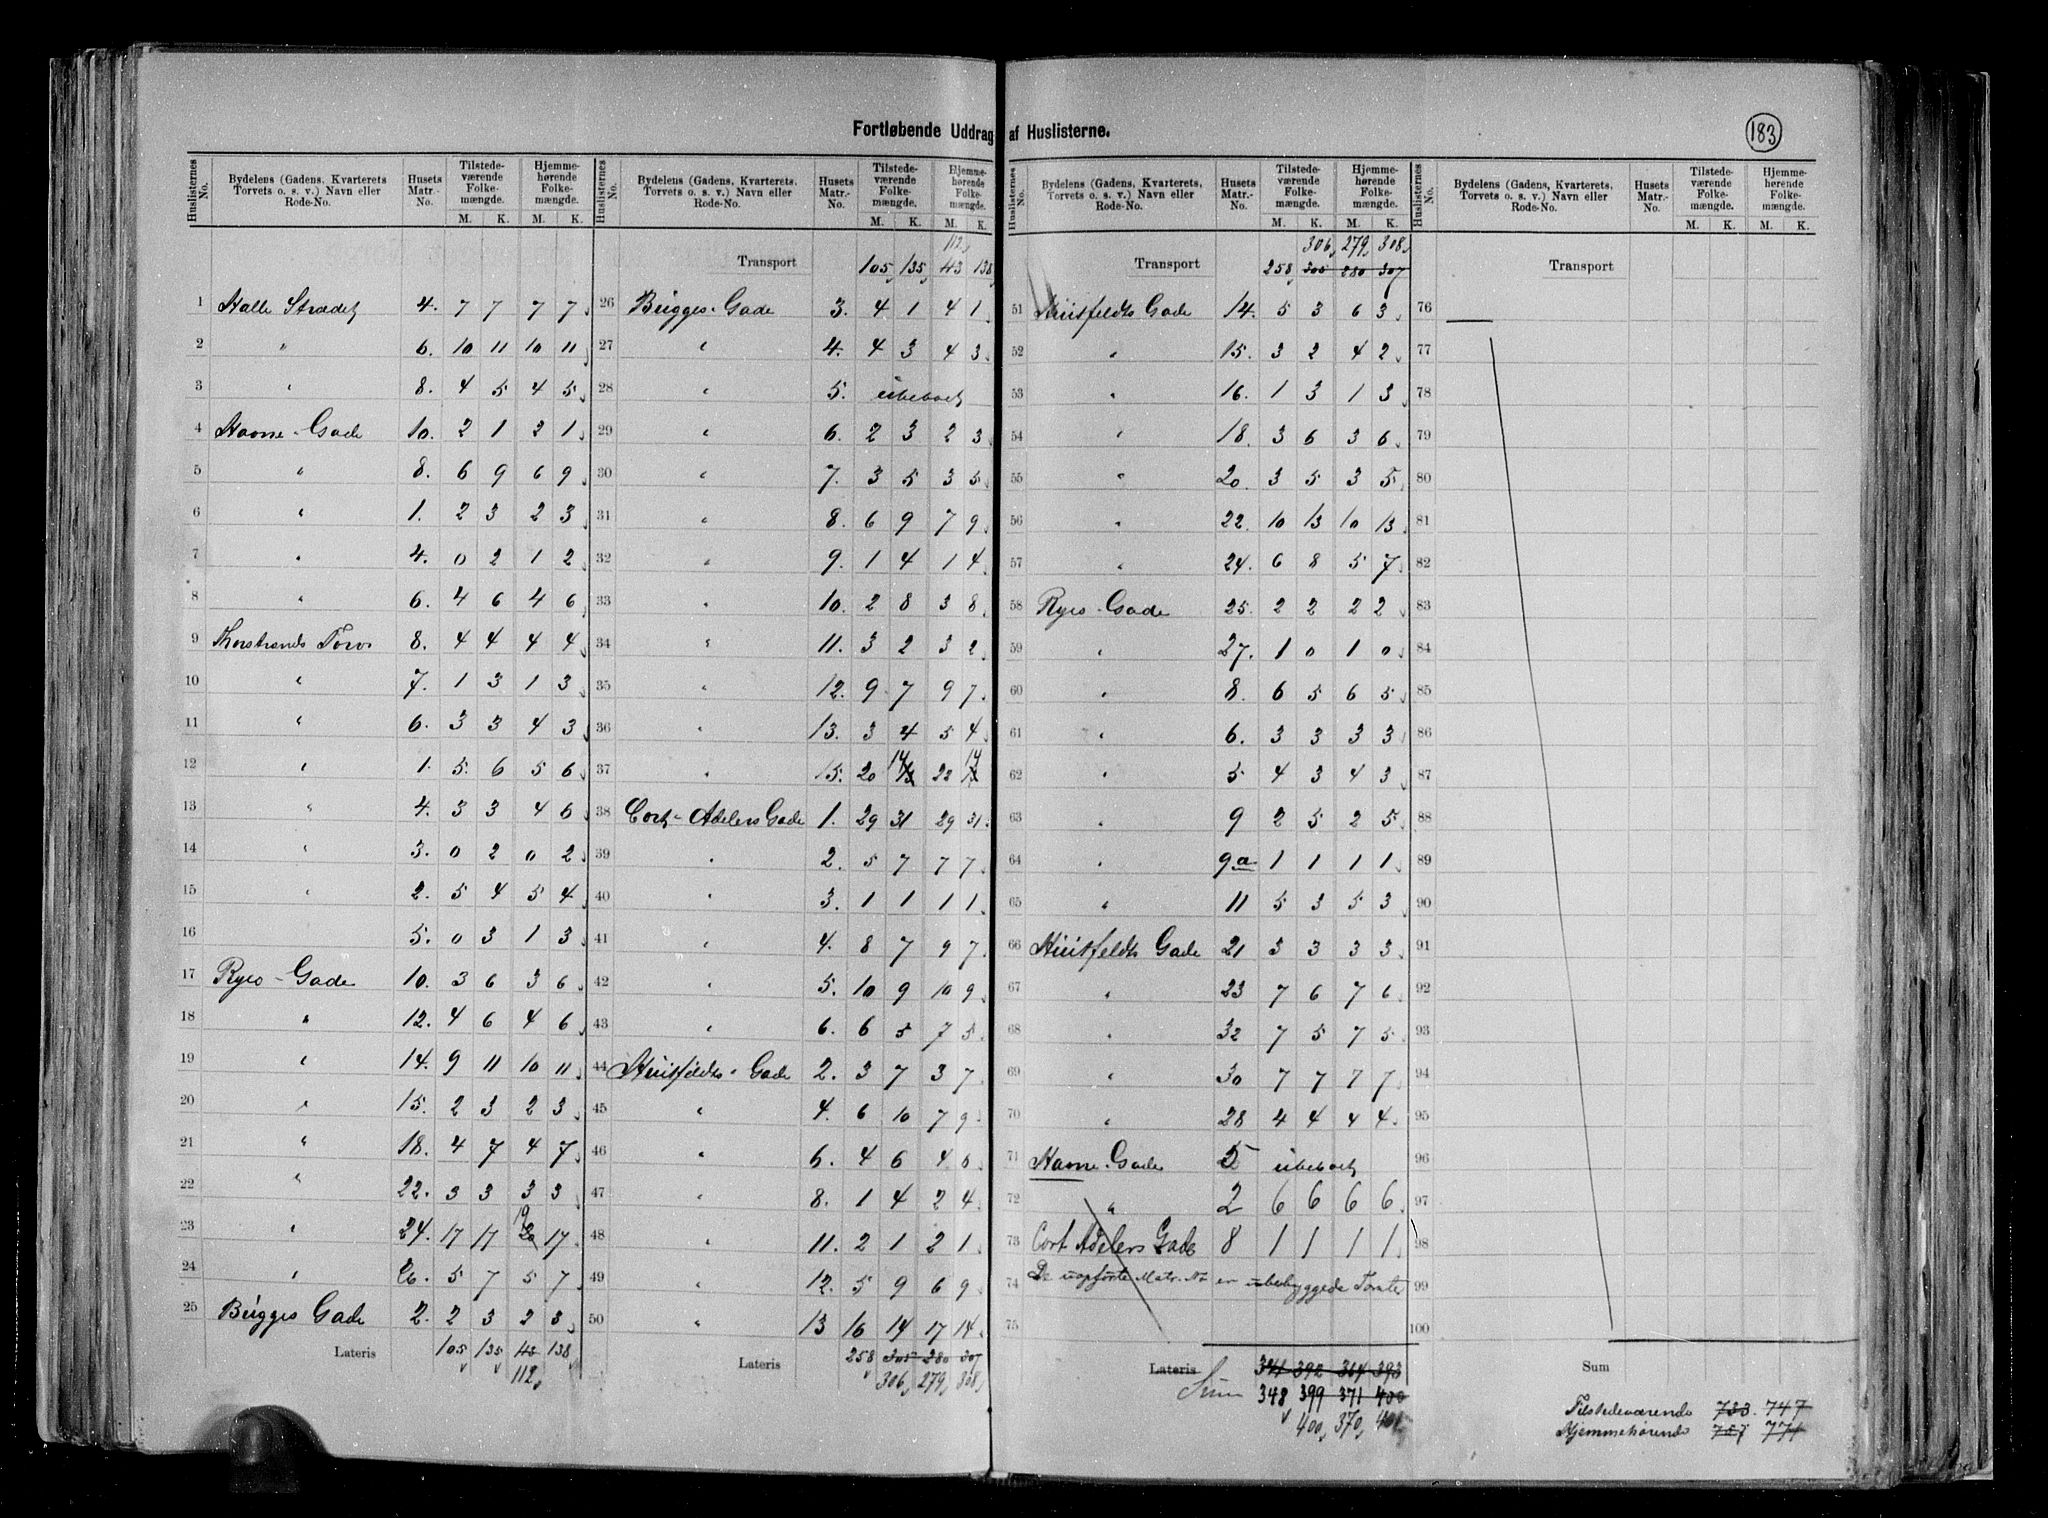 Fortløbende Uddrag af Huslisterne.
183
Huslisternes No. Bydelens (Gadens, Kvarterets, Torvets o. s. v.) Navn eller Rode-No. Husets Matr.-No. Tilstedeværende Folkemængde. M. K. Hjemmehørende Folkemængde. M. K.
1 Halle Strædet 4. 7 7 7 7
2 " 6. 10 11 10 11
3 " 8. 4 5 4 5
4 Havne-Gade 10. 2 1 2 1
5 " 8. 6 9 6 9
6 " 1. 2 3 2 3
7 " 4. 0 2 1 2
8 " 6. 4 6 4 6
9 Thorstrands Torv 8. 4 4 4 4
10 " 7. 1 3 1 3
11 " 6. 3 3 4 3
12 " 1. 5. 6 5 6
13 " 4. 3 3 4 6
14 " 3. 0 2 0 2
15 " 2. 5 4 5 4
16 5. 0 3 1 3
17 Ryes-Gade 10. 3 6 3 6
18 " 12. 4 6 4 6
19 " 14. 9 11 10 11
20 " 15. 2 3 2 3
21 " 18. 4 7 4 7
22 " 22. 3 3 3 3
23 " 24. 17 17 19 20 17
24 " 26. 5 7 5 7
25 Brigges Gade 2. 2 3 2 3
Lateris 105 135 138
112
Huslisternes No. Bydelens (Gadens, Kvarterets, Torvets o. s. v.) Navn eller Rode-No. Husets Matr.-No. Tilstedeværende Folkemængde. M. K. Hjemmehørende Folkemængde. M. K.
112
Transport 105 135 43 138
26 Brigges-Gade 3. 4 1 4 1
27 " 4. 4 3 4 3
28 " 5. ubeboet
29 " 6. 2 3 2 3
30 " 7. 3 5 3 5
31 " 8. 6 9 7 9
32 " 9. 1 4 1 4
33 " 10. 2 8 3 8
34 " 11. 3 2 3 2
35 " 12. 9 7 9 7
36 " 13. 3 4 5 4
37 " 15. 20 14 22 14
38 Cort-Adelers Gade 1. 29 31 29 31
39 " 2. 5 7 7 7
40 " 3. 1 1 1 1
41 " 4. 8 7 9 7
42 " 5. 10 9 10 9
43 " 6. 6 5 7 5
44 Huitfeldts-Gade 2. 3 7 3 7
45 " 4. 6 10 7 9
46 " 6. 4 6 4 6
47 " 8. 1 4 2 4
48 " 11. 2 1 2 1
49 " 12. 5 9 6 9
50 " 13 16 14 17 14
Lateris 258 305 280 307
306 279 308
Huslisternes No. Bydelens (Gadens, Kvarterets, Torvets o. s. v.) Navn eller Rode-No. Husets Matr.-No. Tilstedeværende Folkemængde. M. K. Hjemmehørende Folkemængde. M. K.
306 279 308
Transport 258 305 280 307
51 Huitfeldts Gade 14. 5 3 6 3
52 " 15. 3 2 4 2
53 " 16. 1 3 1 3
54 " 18. 3 6 3 6
55 " 20. 3 5 3 5
56 " 22. 10 13 10 13
57 " 24. 6 8 5 7
58 Ryes-Gade 25. 2 2 2 2
59 " 27. 1 0 1 0
60 " 8. 6 5 6 5
61 " 6. 3 3 3 3
62 " 5 4 3 4 3
63 " 9 2 5 2 5
64 " 9a 1 1 1 1
65 " 11 5 3 5 3
66 Huitfeldts Gade 21 3 3 3 3
67 " 23 7 6 7 6
68 " 32 7 5 7 5
69 " 30 7 7 7 7
70 " 28 4 4 4 4
71 Havne-Gade 5 ubeboet
72 " 2 6 6 6 6
73 Cort Adelers Gade 8 1 1 1 1
74 De uopførte Matr. No er ubebyggede Tomter
75
Lateris 341 392 364 393
Sum 348 399 371 400
400 370 401
Huslisternes No. Bydelens (Gadens, Kvarterets, Torvets o. s. v.) Navn eller Rode-No. Husets Matr.-No. Tilstedeværende Folkemængde. M. K. Hjemmehørende Folkemængde. M. K.
Transport
76
77
78
79
80
81
82
83
84
85
86
87
88
89
90
91
92
93
94
95
96
97
98
99
100
Sum
Tilstedeværende 733. 747
Hjemmehørende 757 771